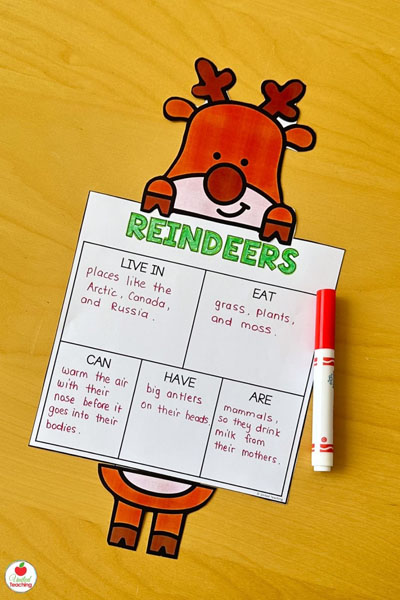 REINDEERS
LIVE IN
places like the
Arctic, Canada,
and Russia.
EAT
grass, plants,
and moss.
CAN
warm the air
with their
nose before it
goes into their
bodies.
HAVE
big antlers
on their heads
ARE
mammals,
so they drink
milk from
their mothers.
United
Teaching